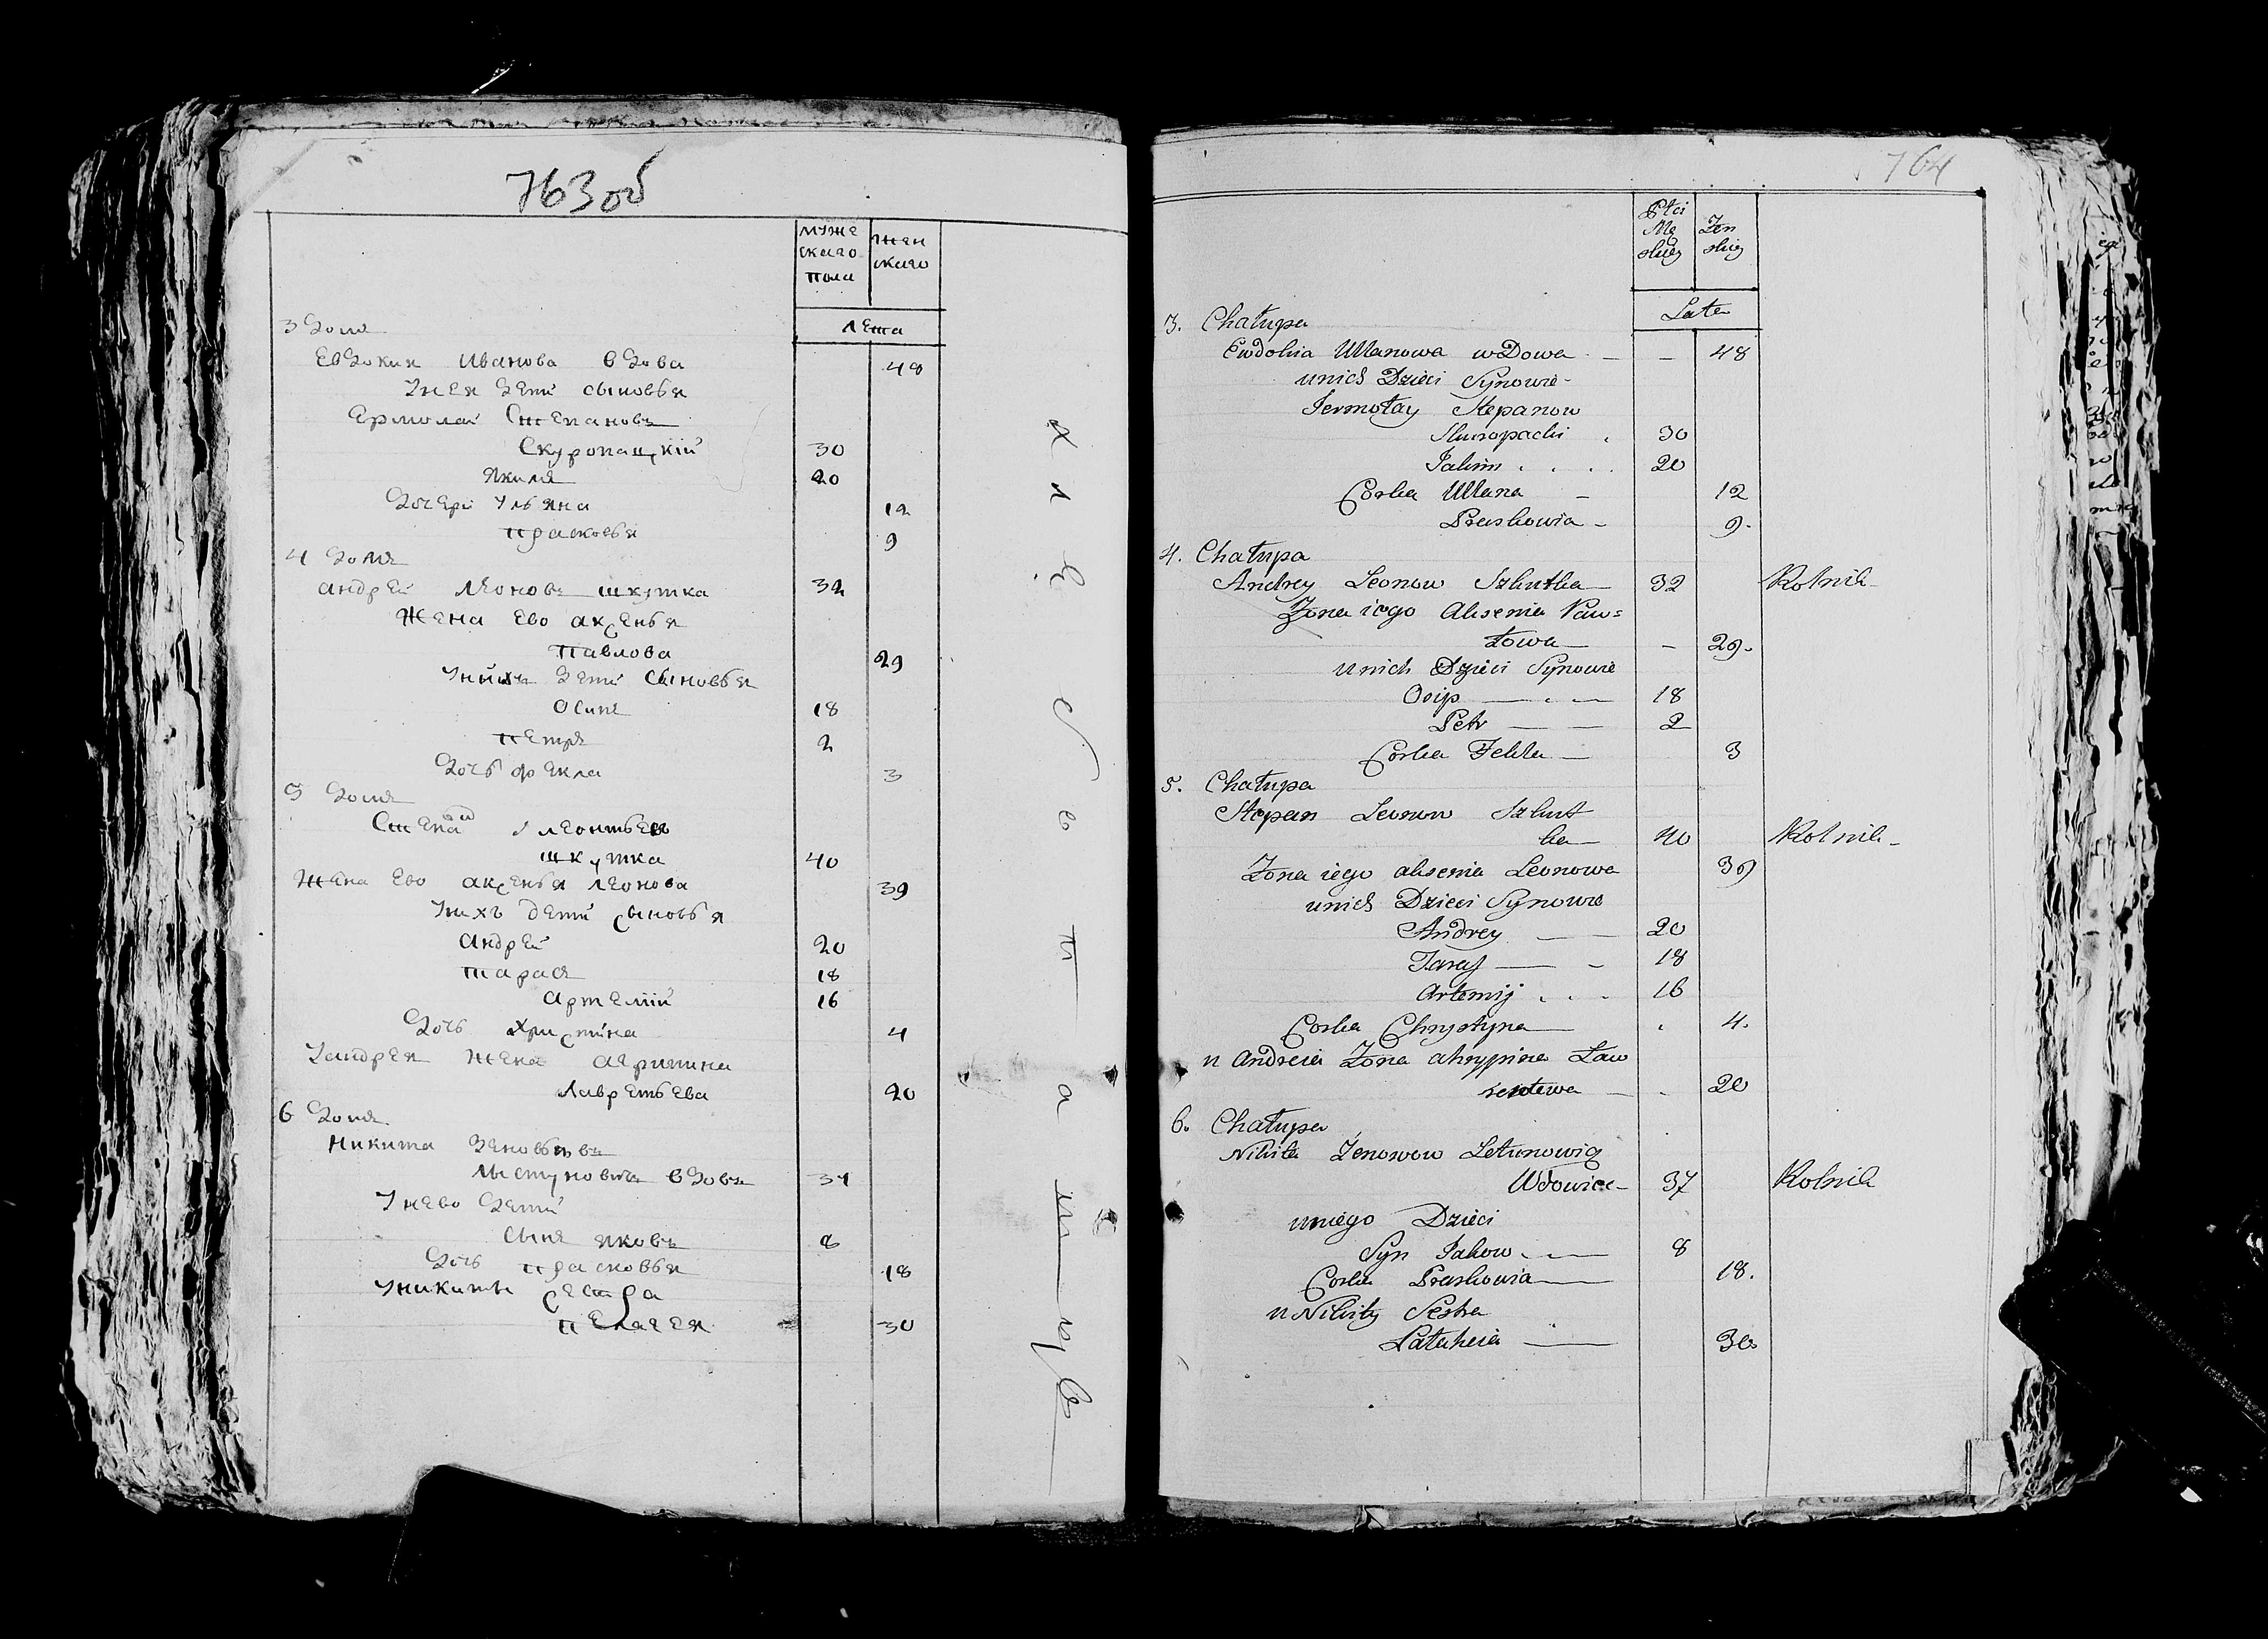 763 об
муже
скаго
пола
жен
скаго
лета
3 домъ
Евдокия Иванова вдова 48
унея дети сыновья
Ермолай Степановъ
Скуропацкий 30
Яким 20
дочери Ульяна 12
Прасковья 9
4 домъ
андрей леоновъ шкутка 32
жена ево аксенья
павлова 29
унихъ дети сыновья
Осипъ 18
петръ 2
дочь фекла 3
5 домъ
Степан леонтьевъ
шкутка 40
жена ево аксенья леонова 39
унихъ дети сыновья
андрей 20
тарасъ 18
артемий 16
дочь христина 4
уандрея жена агрипина
лаврентьева 20
6 домъ
никита зеновьевъ
вдовъ
унево дети
сынъ яковъ 8
дочь прасковья 18
уникиты сестра
пелагея 30
764
Płci
Mę
skiey
Żen
skiey
Lata
3. Chałupa
Ewdokia wDowa — — 48
unich Dzieci Synowie
Jermołay Stepanow
Skuropacki . 30
Jakim . . . . 20
Corka Ullana — 12
Praskowia — 9.
4. Chałupa
Andrey Leonow Szkutka 32 Rolnik
Żona iego Aksenia Paw=
łowa — 29.
unich Dzieci Synowie
Osip — . — 18
Petr — — 2
Corka Fekla — 3
5. Chałupa
Stepan Leonow Szkut
ka — 40 Rolnik
Żona iego aksenia Leonowa 39
unich Dzieci Synowie
Andrey — — 20
Taras — — 18
Artemij . . . 16
Corka Chrystyna — . 4.
u Andreia Żona ahrypina Law
rentewa — . 20
6. Chałupa
Nikita Zenowow Letunowicz
Wdowiec — 37 Rolnik
uniego Dzieci
Syn Jakow . — 8
Corka Praskowia — 18.
u Nikity Sestra
Palaheia — 30